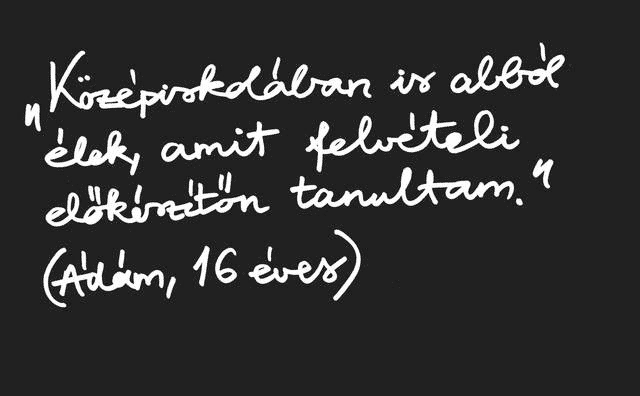 "Középiskolában is abból
élek, amit felvételi
előkészítőn tanultam."
(Ádám, 16 éves)